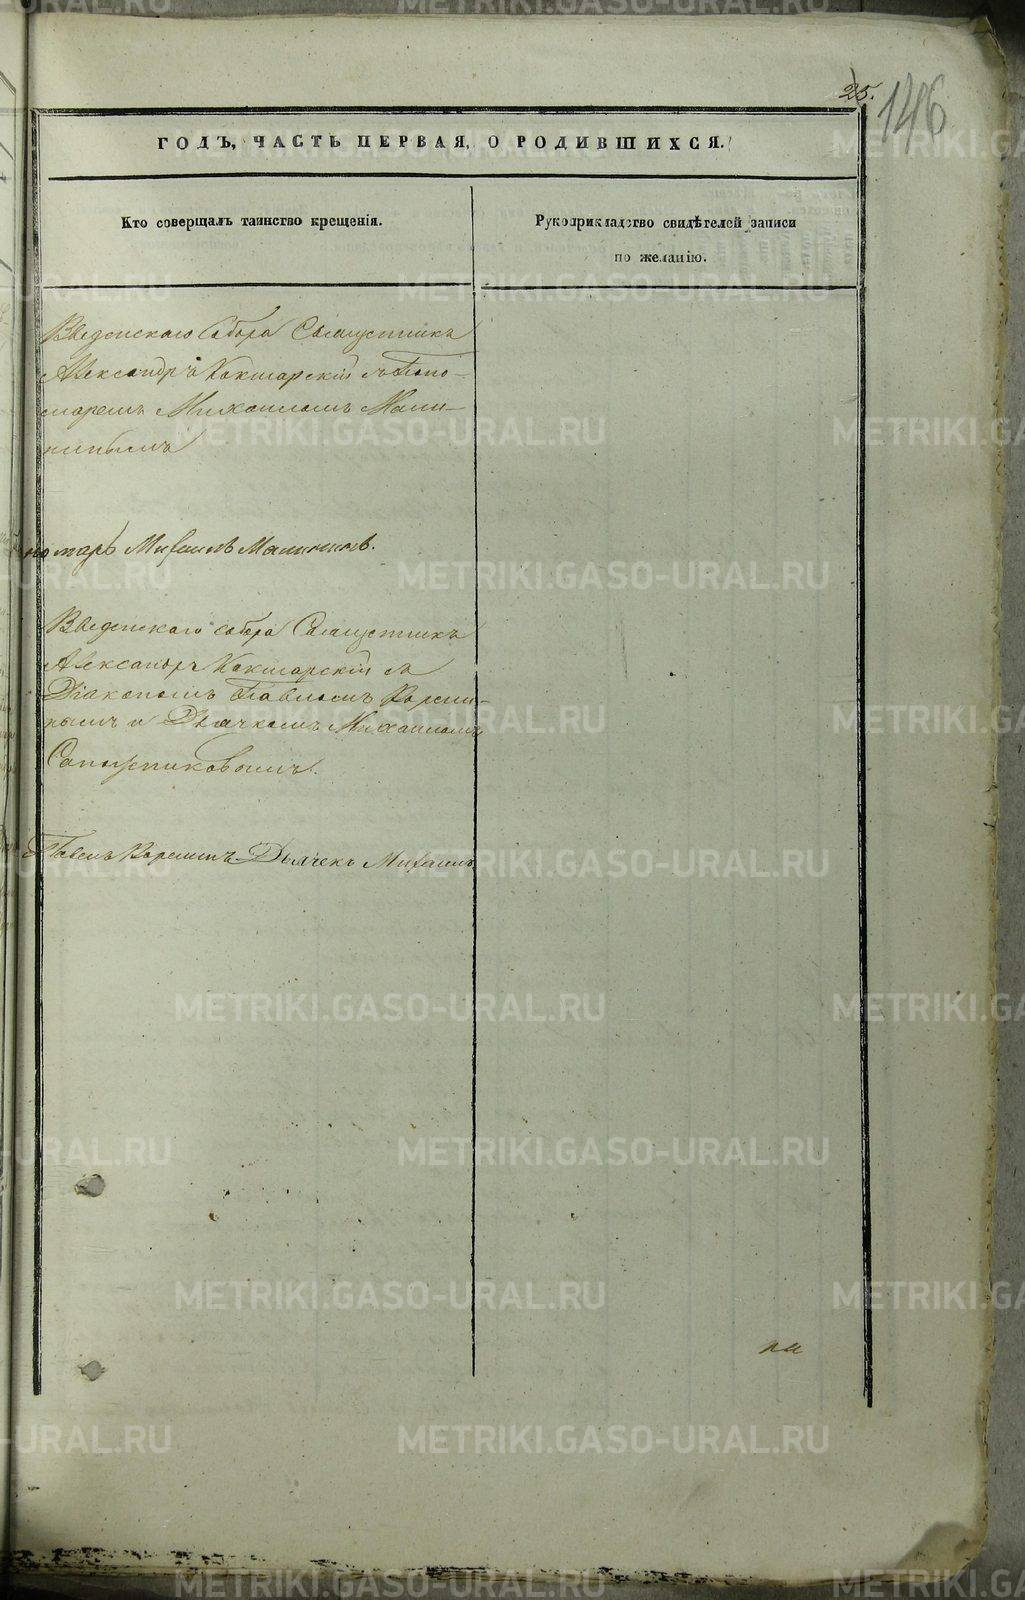 25.
146
ГОДЪ, ЧАСТЬ ПЕРВАЯ, О РОДИВШИХСЯ.
Кто совершалъ таинство крещенія.
Рукоприкладство свидѣтелей записи
по желанію.
Введенскаго Собора Священникъ
Александръ Кокшарскій съ Поно-
маремъ Михаиломъ Мали-
нинымъ
номарь Михаилъ Малининъ.
Введенскаго собора Священникъ
Александръ Кокшарскій съ
Діакономъ Павломъ
и Дьячкомъ Михаиломъ
Сапожниковымъ.
Павелъ Дьячекъ Михаилъ
METRIKI.GASO-URAL.RU